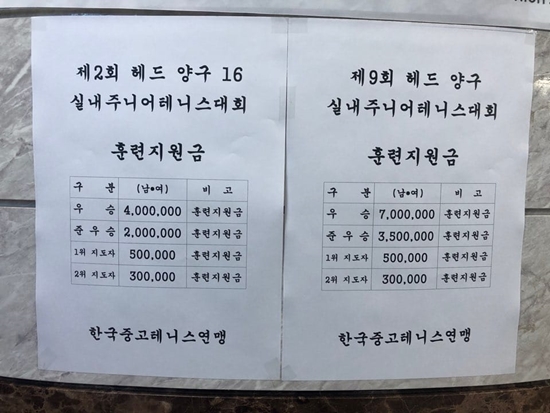 제2회 헤드 양구 16
실내주니어테니스대회
훈련지원금
구 분 (남●여) 비 고
우 승 4,000,000 훈련지원금
준 우 승 2,000,000 훈련지원금
1위 지도자 500,000 훈련지원금
2위 지도자 300,000 훈련지원금
한국중고테니스연맹
제9회 헤드 양구
실내주니어테니스대회
훈련지원금
구 분 (남●여) 비 고
우 승 7,000,000 훈련지원금
준 우 승 3,500,000 훈련지원금
1위 지도자 500,000 훈련지원금
2위 지도자 300,000 훈련지원금
한국중고테니스연맹